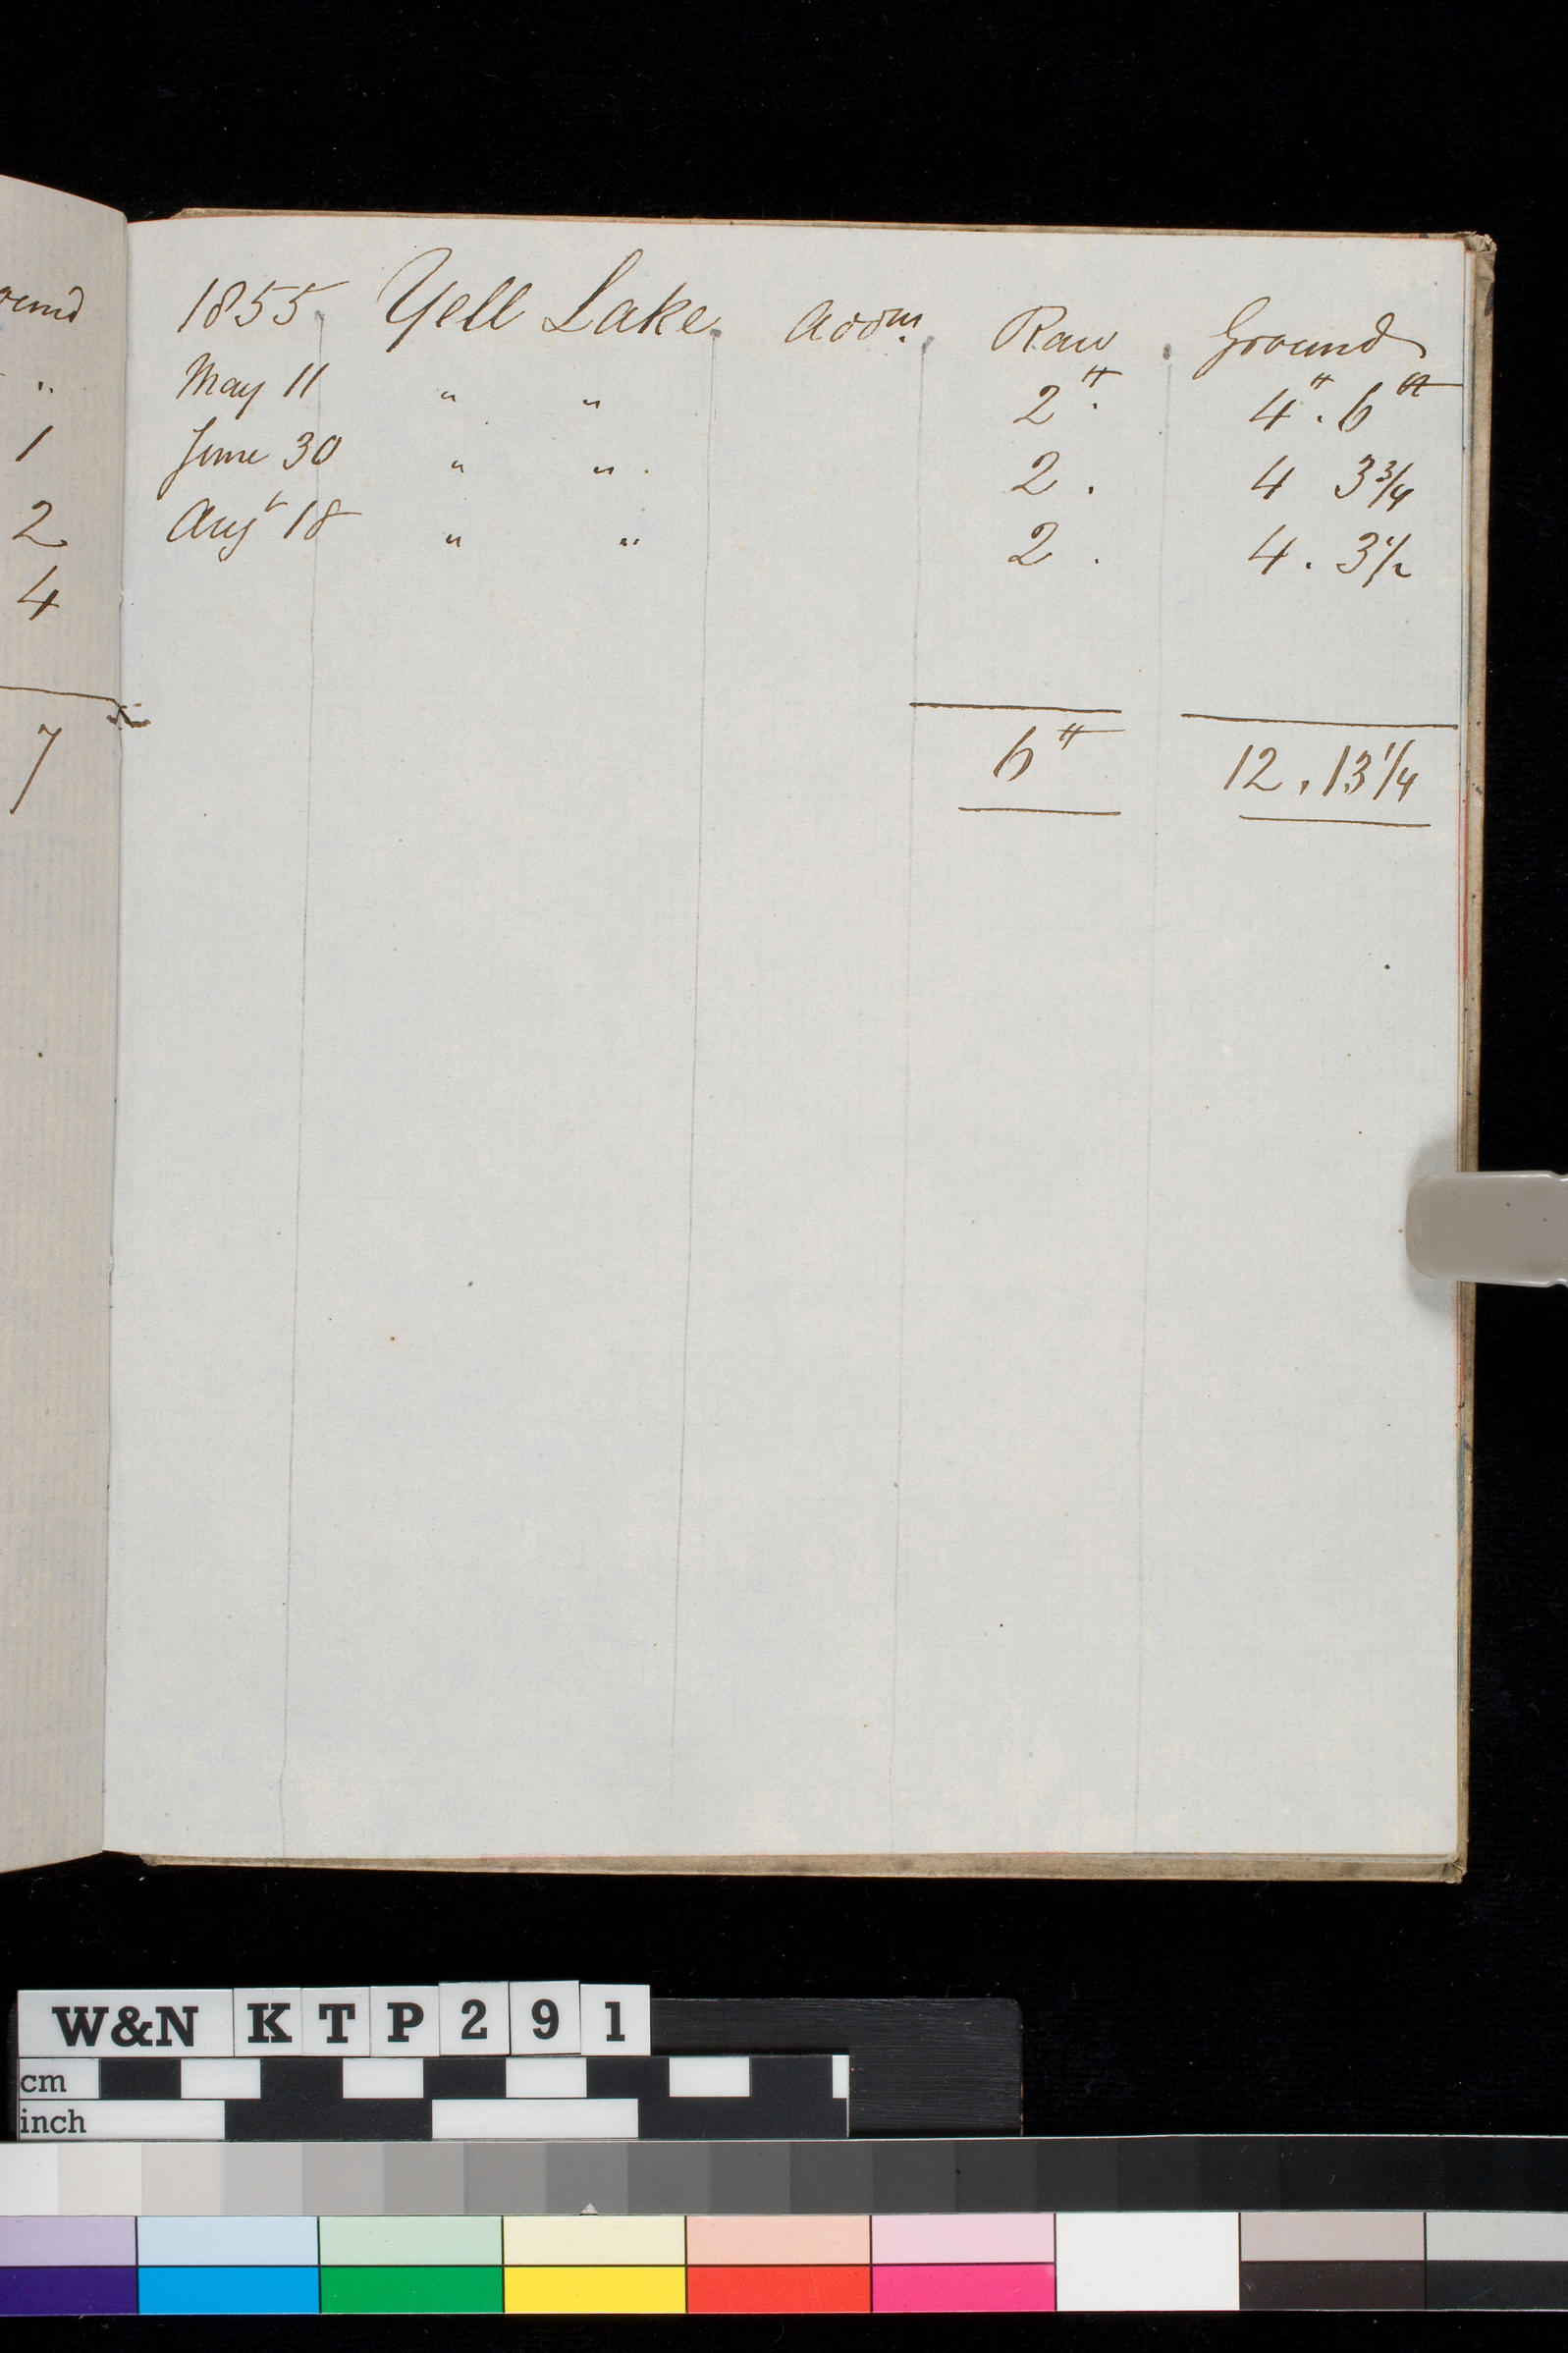 ound
"
1
2
4
7
1855. Yell Lake. Addns. Raw. Ground
May 11 " " 2℔. 4℔. 6℥
June 30 " " 2. 4 3 3/4
Augt 18 " " 2. 4. 3 1/2
6℔ 12. 13 1/4
W&N KTP291
cm
inch